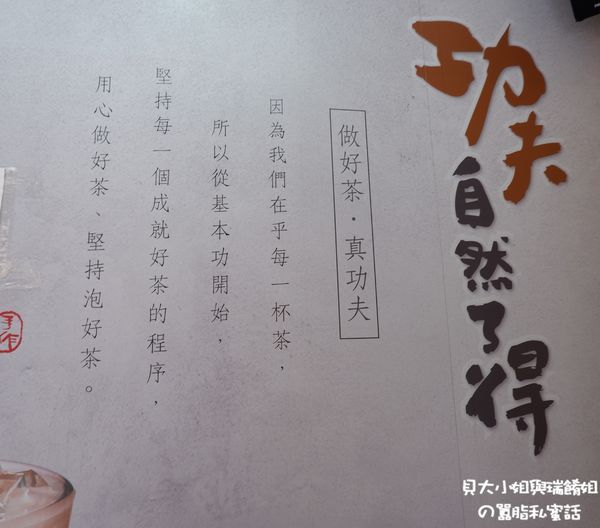 功夫
自然了得
做好茶·真功夫
因為我們在乎每一杯茶，
所以從基本功開始，
堅持每一個成就好茶的程序，
用心做好茶、堅持泡好茶。
手作
貝大小姐與瑞餚姐
の囂脂私蜜話